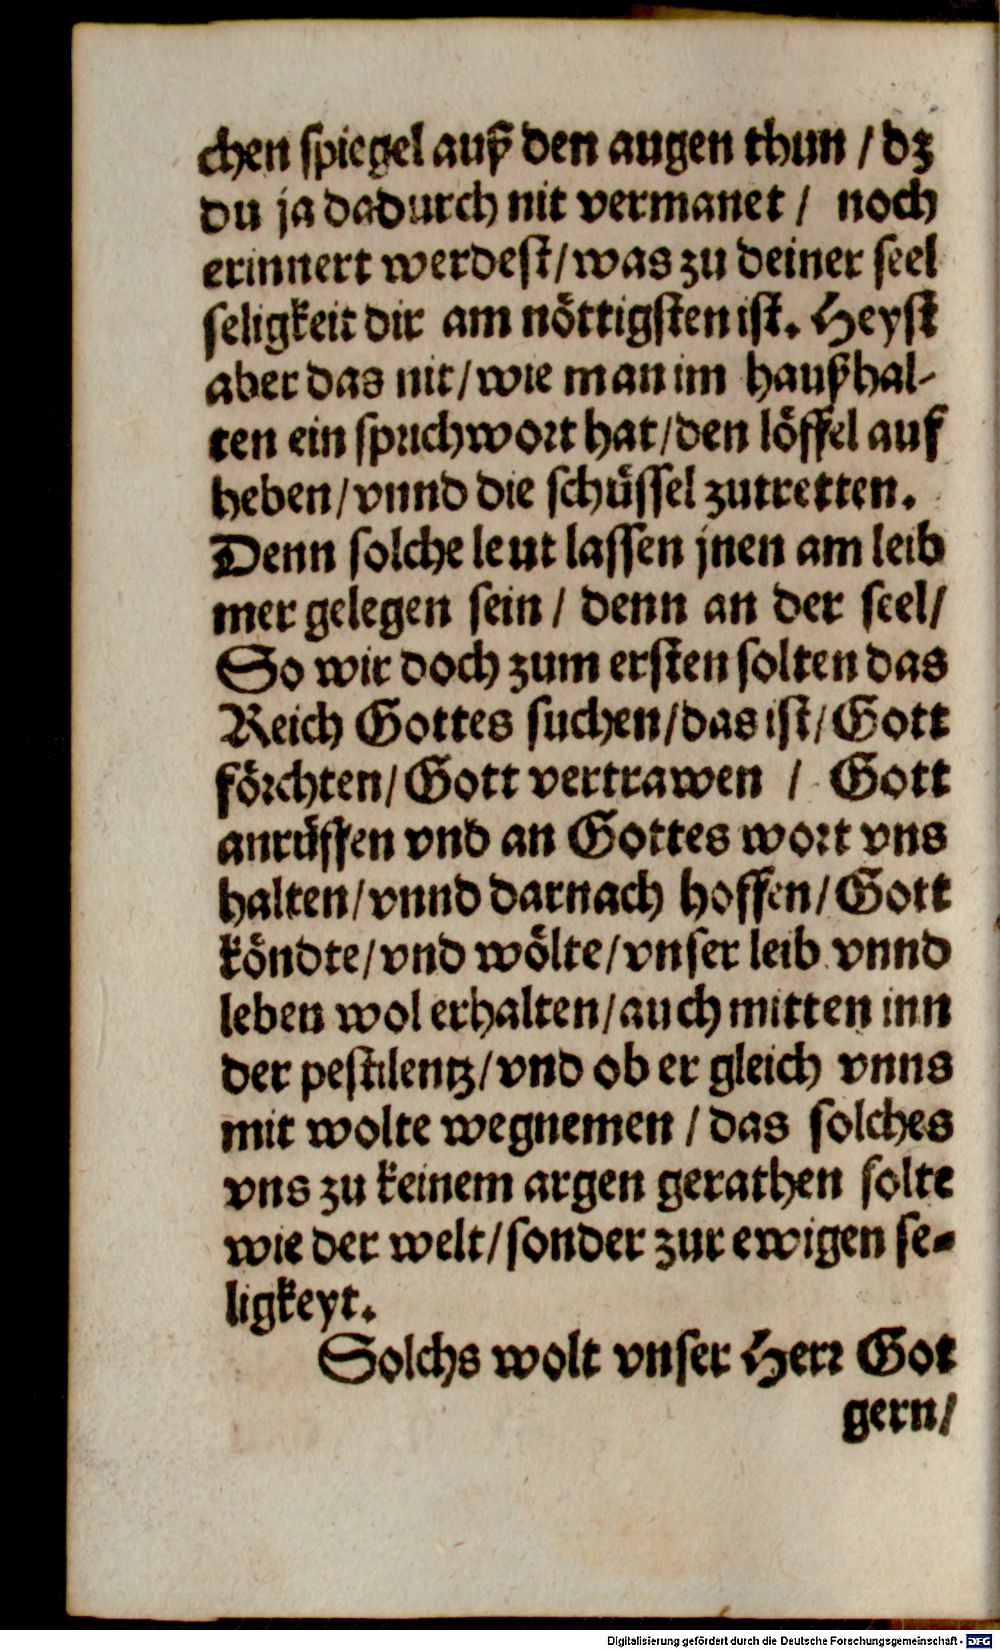 chen spiegel auß den augen thun / dz
du ja dadurch nit vermanet / noch
erinnert werdest / was zu deiner seel
seligkeit dir am nöttigsten ist. Heyst
aber das nit / wie man im haußhal-
ten ein spruchwort hat / den löffel auf
heben / vnnd die schüssel zutretten.
Denn solche leut lassen jnen am leib
mer gelegen sein / denn an der seel /
So wir doch zum ersten solten das
Reich Gottes suchen / das ist / Gott
förchten / Gott vertrawen / Gott
anrüffen vnd an Gottes wort vns
halten / vnnd darnach hoffen / Gott
köndte / vnd wölte / vnser leib vnnd
leben wol erhalten / auch mitten inn
der pestilentz / vnd ob er gleich vnns
mit wolte wegnemen / das solches
vns zu keinem argen gerathen solte
wie der welt / sonder zur ewigen se-
ligkeyt.
Solchs wolt vnser Herr Got
gern /
Digitalisierung gefördert durch die Deutsche Forschungsgemeinschaft - DFG